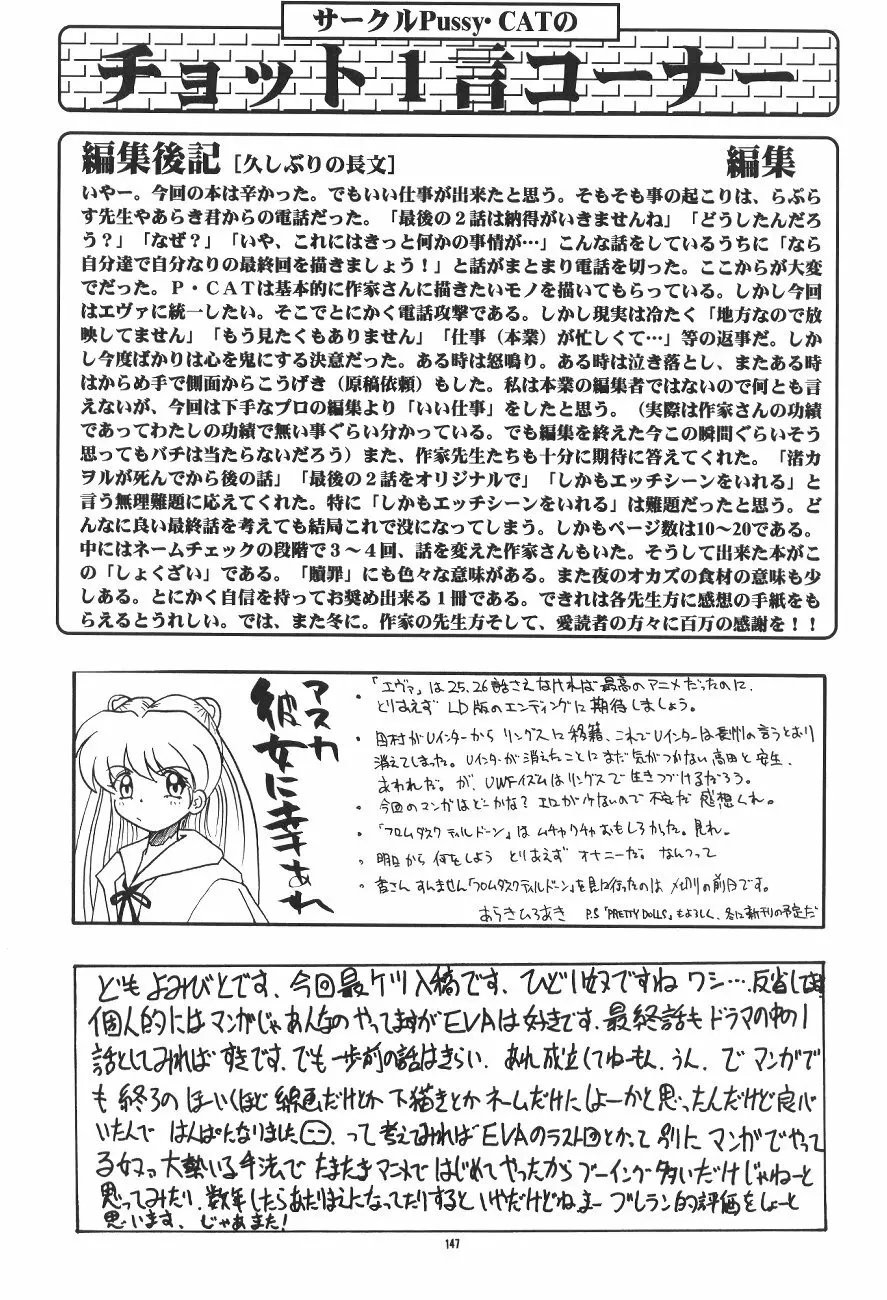 サークルPussy・CATの
チョット1言コーナー
編集後記［久しぶりの長文］ 編集
いやー。今回の本は辛かった。でもいい仕事が出来たと思う。そもそも事の起こりは、らぷら
す先生やあらき君からの電話だった。「最後の２話は納得がいきませんね」「どうしたんだろ
う？」「なぜ？」「いや、これにはきっと何かの事情が…」こんな話をしているうちに「なら
自分達で自分なりの最終回を描きましょう！」と話がまとまり電話を切った。ここからが大変
でだった。Ｐ・ＣＡＴは基本的に作家さんに描きたいモノを描いてもらっている。しかし今回
はエヴァに統一したい。そこでとにかく電話攻撃である。しかし現実は冷たく「地方なので放
映してません」「もう見たくもありません」「仕事（本業）が忙しくて…」等の返事だ。しか
し今度ばかりは心を鬼にする決意だった。ある時は怒鳴り。ある時は泣き落とし、またある時
はからめ手で側面からこうげき（原稿依頼）もした。私は本業の編集者ではないので何とも言
えないが、今回は下手なプロの編集より「いい仕事」をしたと思う。（実際は作家さんの功績
であってわたしの功績で無い事ぐらい分かっている。でも編集を終えた今この瞬間ぐらいそう
思ってもバチは当たらないだろう）また、作家先生たちも十分に期待に答えてくれた。「渚カ
ヲルが死んでから後の話」「最後の２話をオリジナルで」「しかもエッチシーンをいれる」と
言う無理難題に応えてくれた。特に「しかもエッチシーンをいれる」は難題だったと思う。ど
んなに良い最終話を考えても結局これで没になってしまう。しかもページ数は10～20である。
中にはネームチェックの段階で３～４回、話を変えた作家さんもいた。そうして出来た本がこ
の「しょくざい」である。「贖罪」にも色々な意味がある。また夜のオカズの食材の意味も少
しある。とにかく自信を持ってお奨め出来る１冊である。できれは各先生方に感想の手紙をも
らえるとうれしい。では、また冬に。作家の先生方そして、愛読者の方々に百万の感謝を！！
アスカ
彼女に幸あれ
・「エヴァ」は25.26話さえなければ最高のアニメだったのに、
とりあえず LD版のエンディングに期待しましょう。
・田村がUインターから リングスに移籍、これでUインターは長州の言うとおり
消えてしまった。Uインターが消えたことにまだ気がつかない高田と安生、
あわれだ。が、UWFイズムはリングスで生きつづけるだろう。
・今回のマンガはどーかな？エロが少ないので不安だ 感想くれ。
・「フロムダスクティルドーン」は ムチャクチャおもしろかった。見れ。
・明日から 何をしよう とりあえず オナニーだ。なんつって
・皆さん すんません「フロムダスクティルドーン」を見に行ったのは 〆切りの前日です。
あらきひろあき P.S「PRETTY DOLLS」もよろしく、冬に新刊の予定だ
ども よみびとです、今回最ケツ入稿です、ひどい奴ですね ワシ…反省してます
個人的にはマンガじゃあんなのやってますがEVAは好きです、最終話もドラマの中の1
話としてみればすきです、でも一歩前の話はきらい、あれ成立してねーもん、うん、で マンガで
も 終ろの ほーいくほど 線画だけとか 下描きとか ネームだけに しよーかと思ったんだけど良心
いたんで はんぱになりました、って 考えてみれば EVAのラスト回とかって 別に マンガでやって
る奴ァ 大勢いる手法で たまたまアニメで はじめてやったから ブーイング多いだけじゃねーと
思ってみたり、数年したらあたりまえになってたりすると いやだけどねまー ブレラン的評価をしよーと
思います、じゃあまた！
147